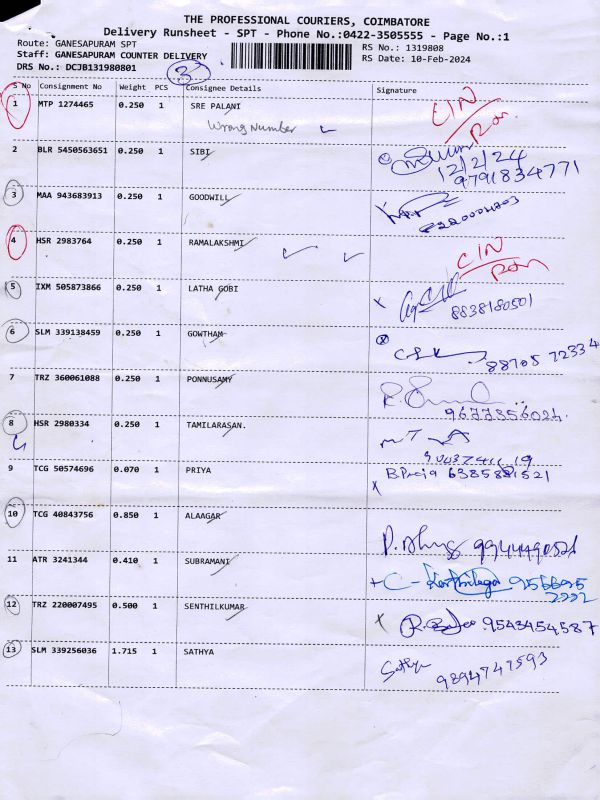 THE PROFESSIONAL COURIERS, COIMBATORE
Delivery Runsheet - SPT - Phone No.:0422-3505555 - Page No.:1
Route: GANESAPURAM SPT RS No.: 1319808
Staff: GANESAPURAM COUNTER DELIVERY RS Date: 10-Feb-2024
DRS No.: DCJB131980801 3
S No Consignment No Weight PCS Consignee Details Signature
1 MTP 1274465 0.250 1 SRE PALANI CIN
Wrong Number
2 BLR 5450563651 0.250 1 SIBI
12/2/24
9791834771
3 MAA 943683913 0.250 1 GOODWILL
4 HSR 2983764 0.250 1 RAMALAKSHMI CIN
5 IXM 505873866 0.250 1 LATHA GOBI
8838180501
6 SLM 339138459 0.250 1 GOWTHAM
88705 72334
7 TRZ 360061088 0.250 1 PONNUSAMY
8 HSR 2980334 0.250 1 TAMILARASAN.
9 TCG 50574696 0.070 1 PRIYA
10 TCG 40843756 0.850 1 ALAAGAR
11 ATR 3241344 0.410 1 SUBRAMANI
12 TRZ 220007495 0.500 1 SENTHILKUMAR 9543454587
13 SLM 339256036 1.715 1 SATHYA Sathya
9894747593